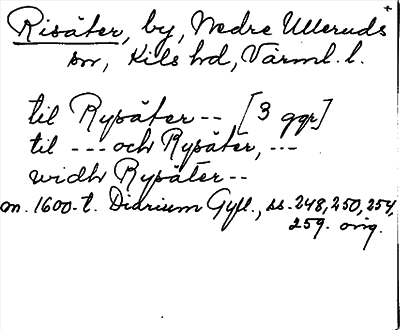 Risäter, by, Nedre Ulleruds
sn, Kils hd, Värml. l.
til Rysäter -- [3 ggr]
til --- och Rysäter, ---
widh Rysäter --
m. 1600-t. Diarium Gyll., ss. 248, 250, 254,
259. orig.